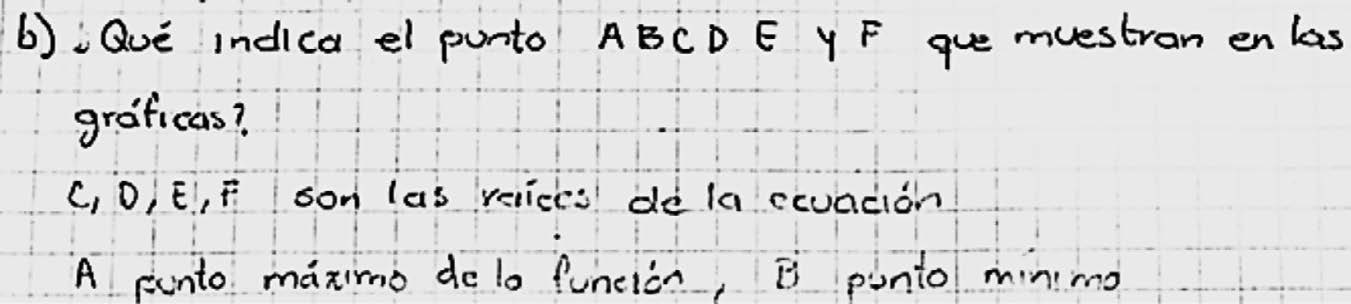 b) ¿Qué indica el punto A B C D E y F que muestran en las
gráficas?
C, D, E, F son las raíces de la ecuación
A punto máximo de la función, B punto mínimo